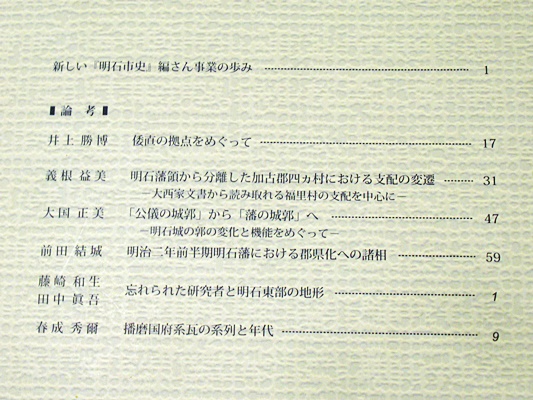 新しい『明石市史』編さん事業の歩み 1
論 考
井上 勝博 倭直の拠点をめぐって 17
義根 益美 明石藩領から分離した加古郡四ヵ村における支配の変遷 31
―大西家文書から読み取れる福里村の支配を中心に―
大国 正美 「公儀の城郭」から「藩の城郭」へ 47
―明石城の郭の変化と機能をめぐって―
前田 結城 明治二年前半期明石藩における郡県化への諸相 59
藤崎 和生
田中 眞吾 忘れられた研究者と明石東部の地形 1
春成 秀爾 播磨国府系瓦の系列と年代 9